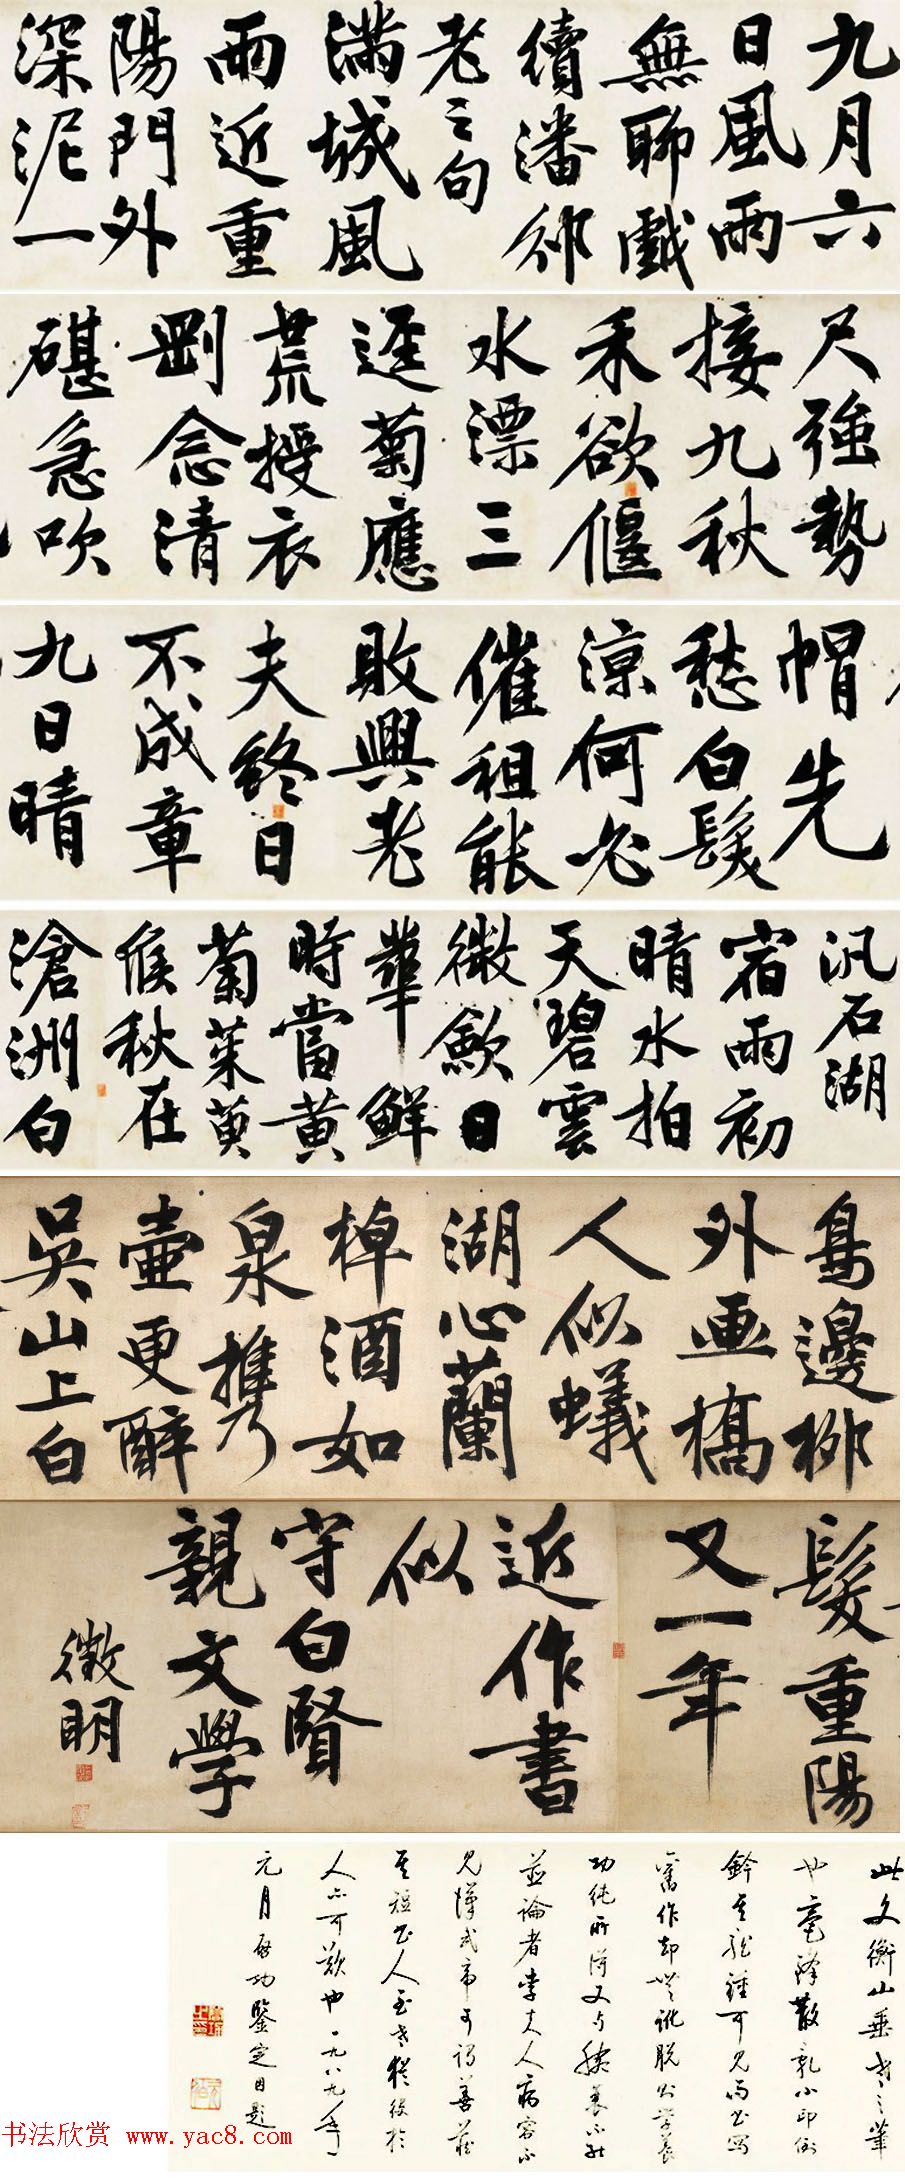 九月六
日風雨
無聊戲
續潘邠
老之句
滿城風
雨近重
陽門外
深泥一
尺強勢
接九秋
禾欲偃
水漂三
逕菊應
荒授衣
剛念清
碪急吹
帽先
愁白髮
涼何必
催租能
敗興老
夫終日
不成章
九日晴
汎石湖
宿雨初
晴水拍
天碧雲
微歛日
華鮮
時當黃
菊茱萸
候秋在
滄洲白
鳥邊柳
外畫橋
人似蟻
湖心蘭
棹酒如
泉攜
壺更醉
吳山上白
髮重陽
又一年
近作書
似
守白賢
親文學
徵明
此文衡山垂老之筆
也毫鋒散亂小印倒
鈐其龍鍾可見而書寫
舊作却無訛脫公學養
功純所得又與
並論者李夫人病容不
見漢武帝可謂善藏
其短書人至老
人亦可歎也一九八九年
元月啓功鑒定因題
书法欣赏 www.yac8.com